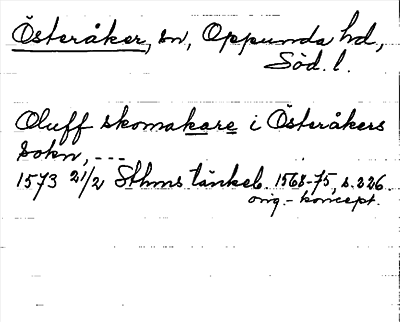 Österåker, sn, Oppunda hd,
Söd. l.
Oluff skomakare i Österåkers
Sokn, ---
1573 21/2 Sthms tänkeb. 1568-75, s. 226.
orig.-koncept.